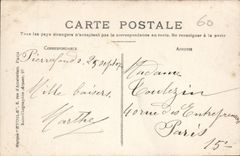 CARTE POSTALE
60
Tous les pays étrangers n'acceptent pas la correspondance au recto. Se renseigner à la poste
CORRESPONDANCE
ADRESSE
Pierrefonds 25 sept
Mille baisers
Marthe
Madame
40 rue des Entrepreneurs
Paris
15